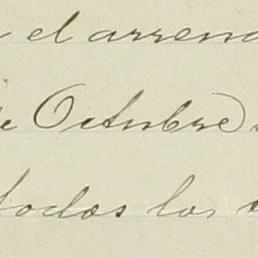 el arrend
Octubre
todos los